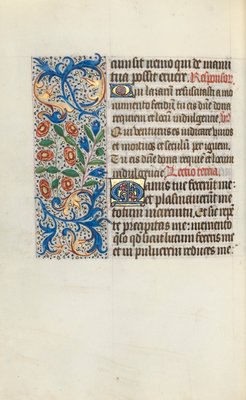 cum sit nemo qui de manu
tua possit eruere. Responsor
Qui lazarū resuscitasti a mo
numento fetidū tu eis dñe dona
requiem et locū indulgencie. V
Qui venturus es iudicare vivos
et mortuos et seculū per ignem.
Tu eis dñe dona requiē et locum
indulgencie. Lectio tercia.
Manus tue fecerūt me:
et plasmaverūt me
totum in circuitu, et sic repē
te precipitas me: memento
q̄so qd sicut lutum feceris me
et in pulverem reduces me: